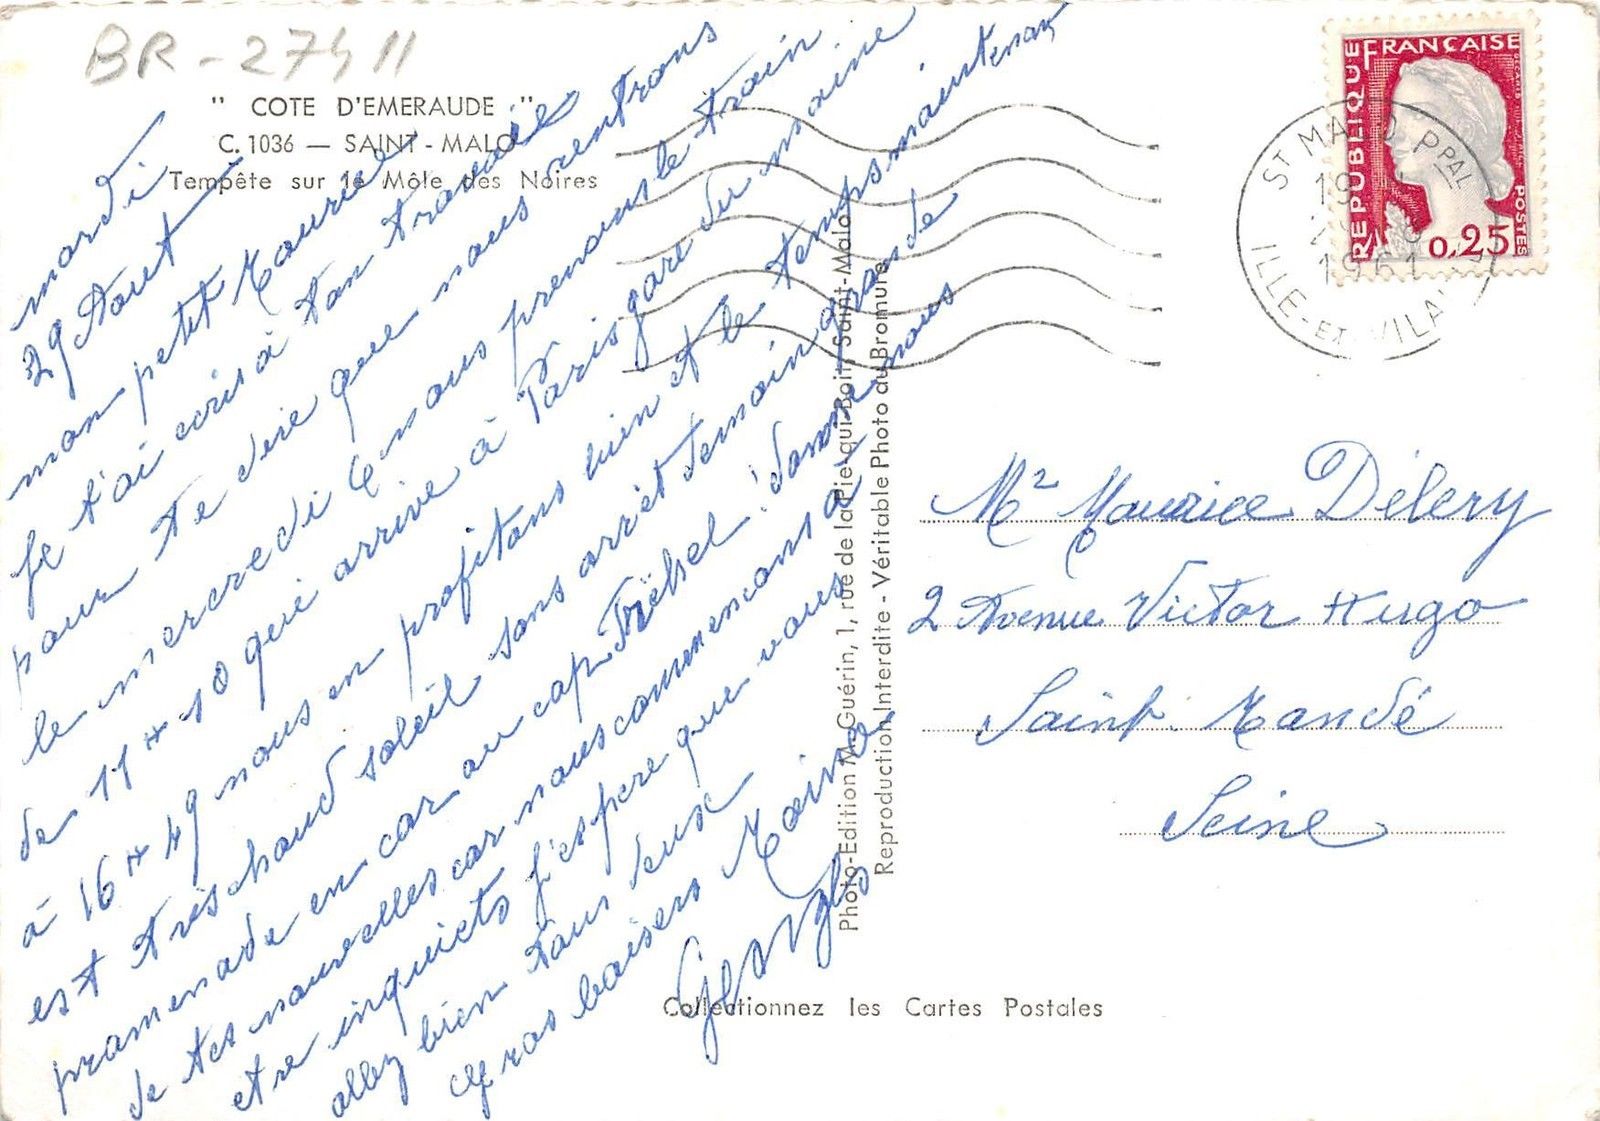 BR-27411
" COTE D'EMERAUDE "
C. 1036 — SAINT-MALO
Tempête sur le Môle des Noires
mardi
29 Aout
mon petit Maurice
Je t'ai ecris à ton travail
pour te dire que nous rentrons
le mercredi 6 nous prenons le train
de 11 H 10 qui arrive à Paris gare du maine
à 16 H 49 nous en profitons bien et le temps maintenan
est très chaud soleil sans arrêt demain grande
promenade en car au cap Fréhel! donne nous
de tes nouvelles car nous commencons a
etre inquiets j'espere que vous
allez bien tous deux
gros baisers Maine
Georges
Photo-Edition M. Guérin, 1, rue de la Pie-qui-Boit, Saint-Malo
Reproduction Interdite - Véritable Photo au Bromure
Collectionnez les Cartes Postales
REPUBLIQUE FRANÇAISE
0,25
POSTES
ST MALO PPAL
1961
ILLE-ET-VILAINE
Mr Maurice Délery
2 Avenue Victor Hugo
Saint. Mandé
Seine